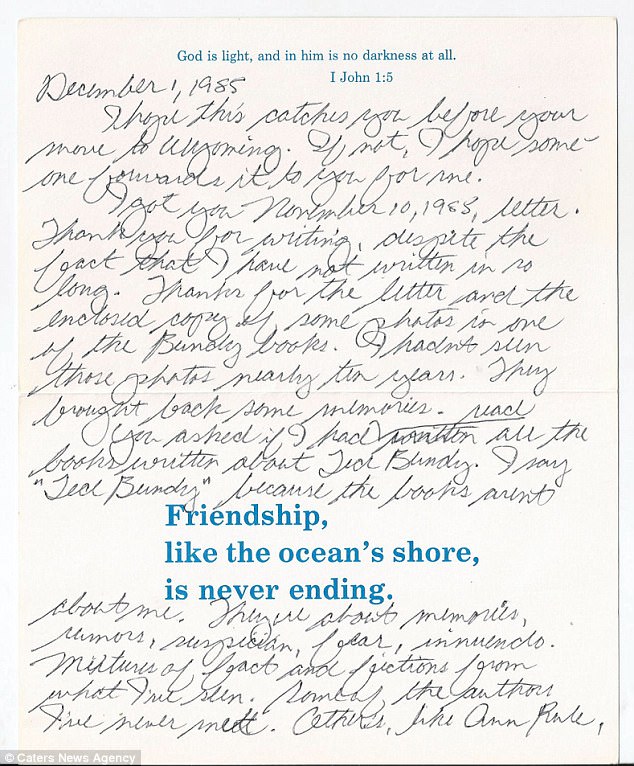 God is light, and in him is no darkness at all.
I John 1:5
December 1, 1985
I hope this catches you before your
move to Wyoming. If not, I hope some-
one forwards it to you for me.
I got you November 10, 1985, letter.
Thank you for writing, despite the
fact that I have not written in so
long. Thanks for the letter and the
enclosed copy of some photos in one
of the Bundy books. I hadn't seen
those photos nearly ten years. They
brought back some memories.
read
You asked if I had written all the
books written about Ted Bundy. I say
"Ted Bundy" because the books aren't
Friendship,
like the ocean's shore,
is never ending.
about me. They're about memories,
rumors, suspicion, fear, innuendo.
Mixtures of fact and fictions from
what I've seen. Some of the authors
I've never met. Others, like Ann Rule,
© Caters News Agency